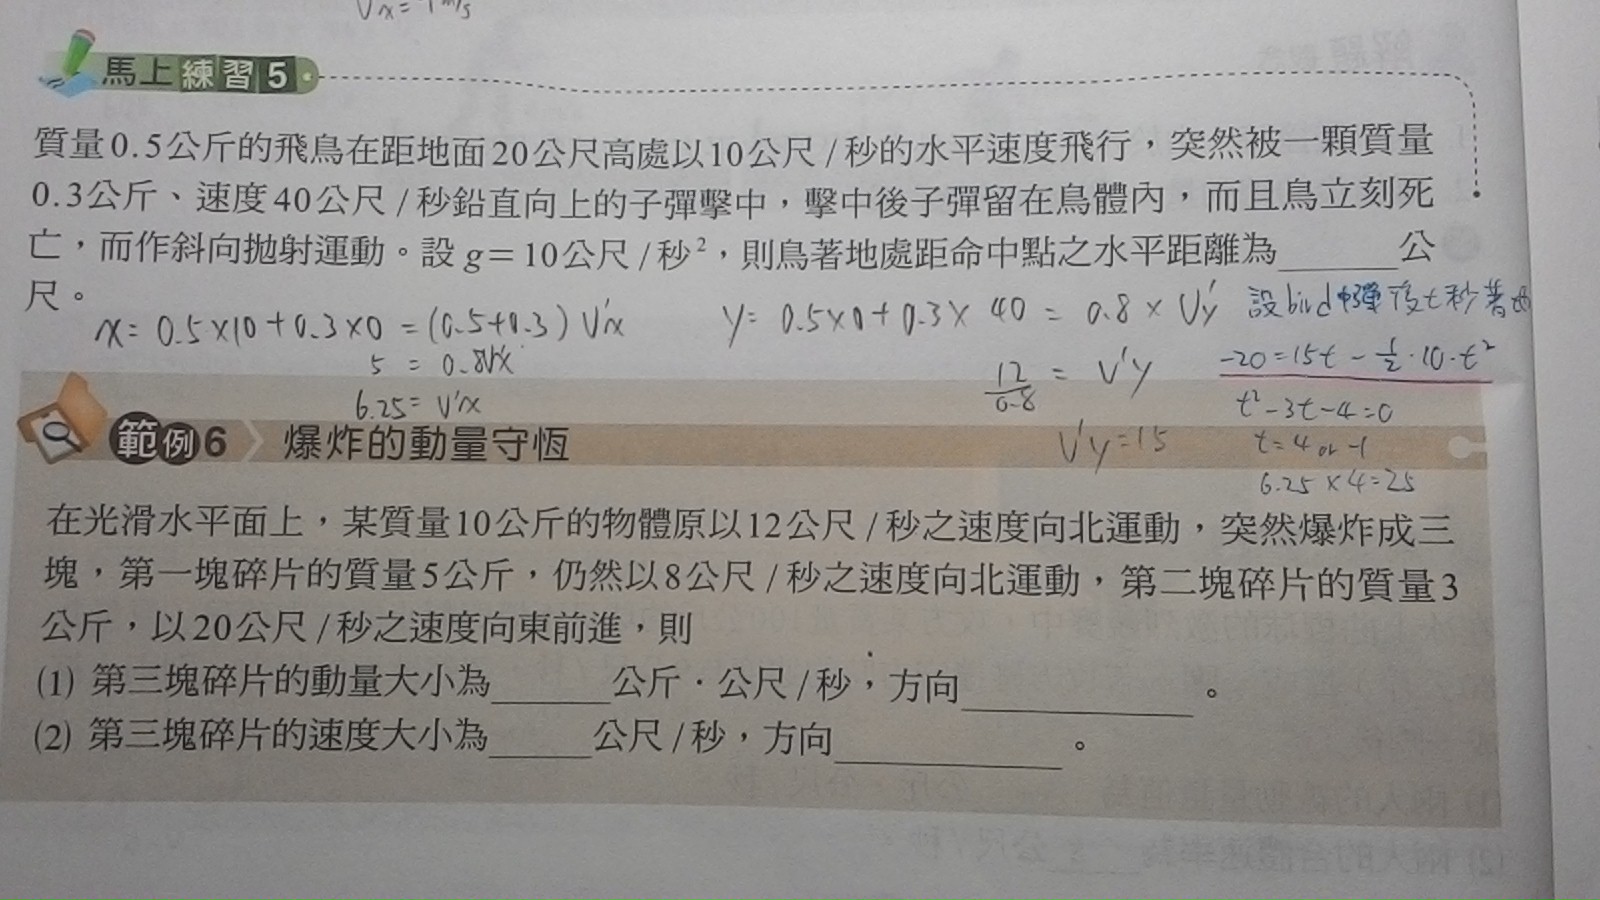 Vx = 1 m/s
馬上練習5
質量0.5公斤的飛鳥在距地面20公尺高處以10公尺/秒的水平速度飛行，突然被一顆質量
0.3公斤、速度40公尺/秒鉛直向上的子彈擊中，擊中後子彈留在鳥體內，而且鳥立刻死
亡，而作斜向拋射運動。設g＝10公尺/秒²，則鳥著地處距命中點之水平距離為______公
尺。
x= 0.5×10+0.3×0 =(0.5+0.3) V'x
5 = 0.8V'x
6.25= V'x
y= 0.5×0+0.3× 40 = 0.8 × V'y
12/0.8 = V'y
V'y=15
設bird中彈後t秒著地
-20=15t - ½·10·t²
t²-3t-4=0
t=4 or -1
6.25×4=25
範例6 爆炸的動量守恆
在光滑水平面上，某質量10公斤的物體原以12公尺/秒之速度向北運動，突然爆炸成三
塊，第一塊碎片的質量5公斤，仍然以8公尺/秒之速度向北運動，第二塊碎片的質量3
公斤，以20公尺/秒之速度向東前進，則
(1) 第三塊碎片的動量大小為______公斤·公尺/秒，方向____________。
(2) 第三塊碎片的速度大小為_____公尺/秒，方向____________。